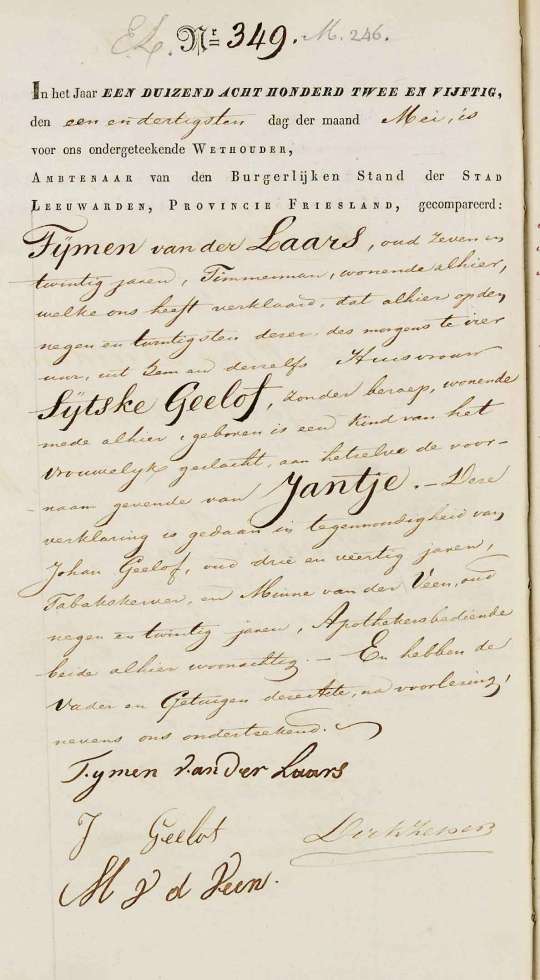 E.L. Nr 349. M. 246.
In het Jaar EEN DUIZEND ACHT HONDERD TWEE EN VIJFTIG,
den een en dertigsten dag der maand Mei, is
voor ons ondergeteekende WETHOUDER,
AMBTENAAR van den Burgerlijken Stand der STAD
LEEUWARDEN, PROVINCIE FRIESLAND, gecompareerd:
Tymen van der Laars, oud zeven en
twintig jaren, Timmerman, wonende alhier,
welke ons heeft verklaard, dat alhier op den
negen en twintigsten dezer, des morgens te vier
uur, uit hem en deszelfs Huisvrouw
Sytske Geelof, zonder beroep, wonende
mede alhier, geboren is een Kind van het
vrouwelyk geslacht, aan hetzelve de voor-
naam gevende van Jantje. — Deze
verklaring is gedaan in tegenwoordigheid van
Johan Geelof, oud drie en veertig jaren,
Tabakskerver, en Minne van der Veen, oud
negen en twintig jaren, Apothekersbediende
beide alhier woonachtig. — En hebben de
Vader en Getuigen deze Acte, na voorlezing,
nevens ons ondertekend.
Tymen van der Laars
J Geelof
M V d Veen.